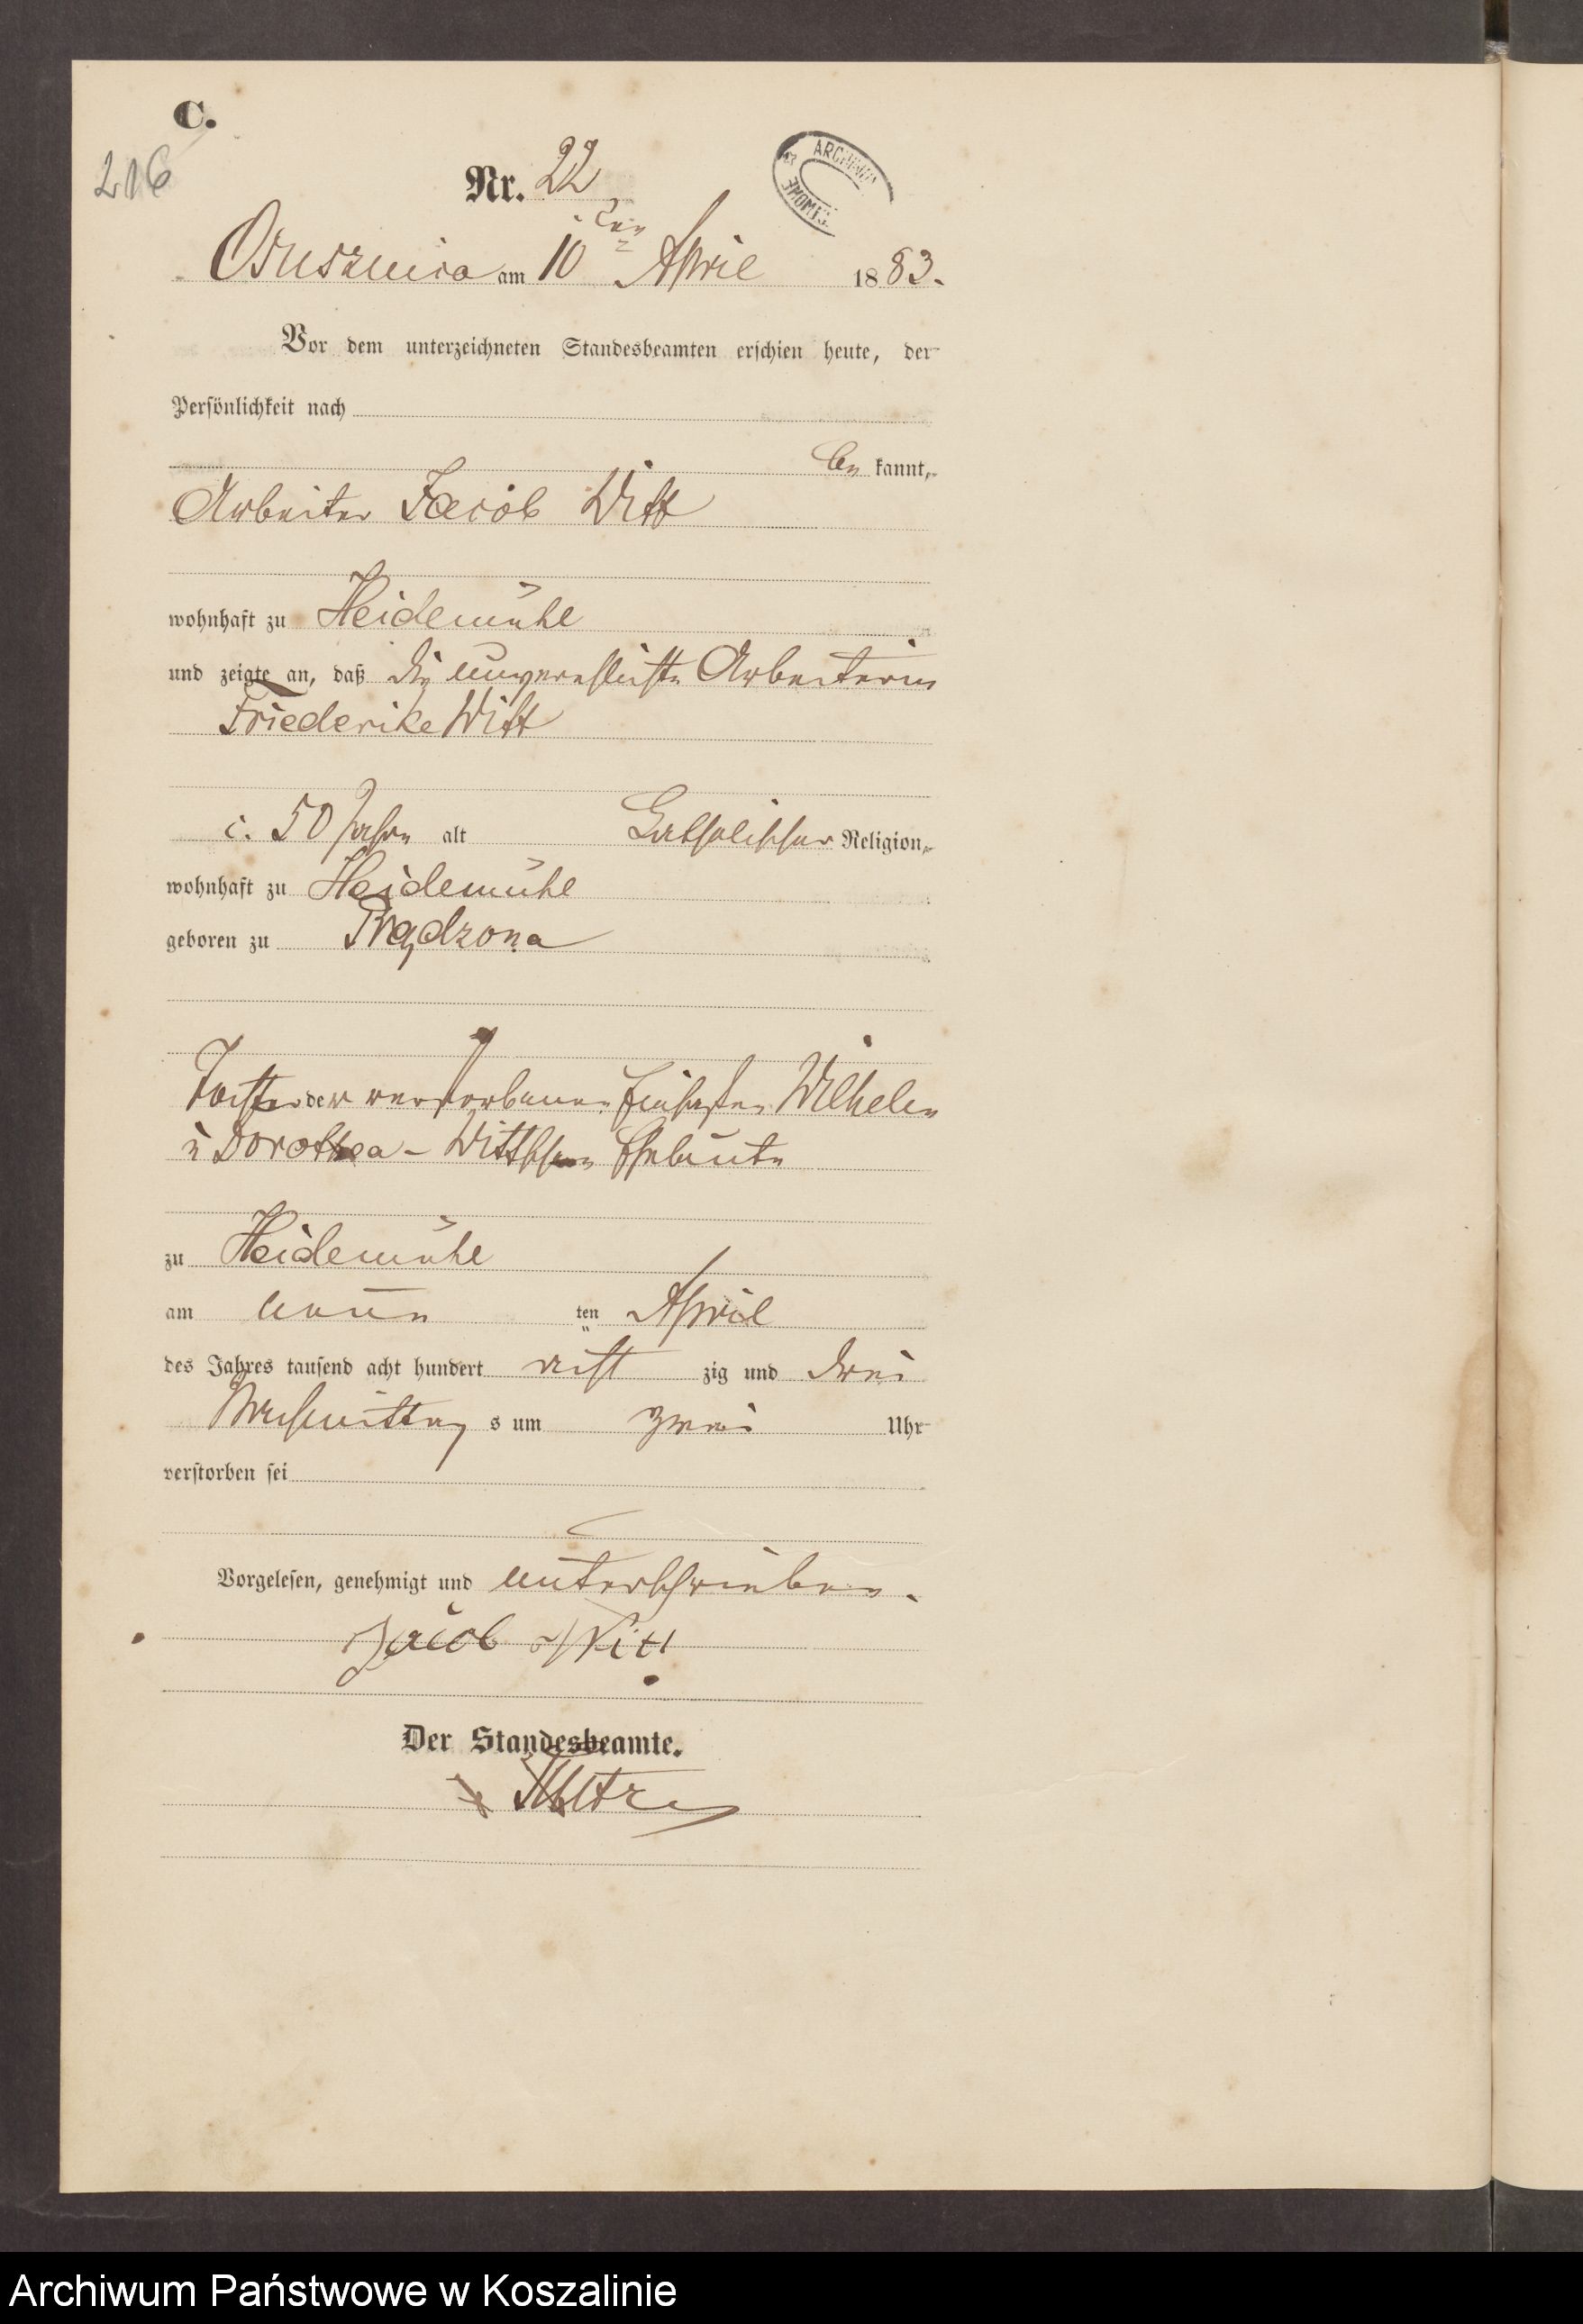 C.
216
Nr. 22
ARCHIWUM
Osusznica am 10ten April 1883.
Vor dem unterzeichneten Standesbeamten erschien heute, der
Persönlichkeit nach
be kannt,
Arbeiter Jacob Witt
wohnhaft zu Heidemühl
und zeigte an, daß die unverehlichte Arbeiterin
Friederike Witt
c. 50 Jahre alt katholischer Religion,
wohnhaft zu Heidemühl
geboren zu Prądzona
Tochter der verstorbenen Einsassen Wilhelm
u Dorothea - Wittschen Eheleute
zu Heidemühl
am neun ten April
des Jahres tausend acht hundert acht zig und drei
Nachmittag s um zwei Uhr
verstorben sei
Vorgelesen, genehmigt und unterschrieben.
Jacob Witt
Der Standesbeamte.
Archiwum Państwowe w Koszalinie